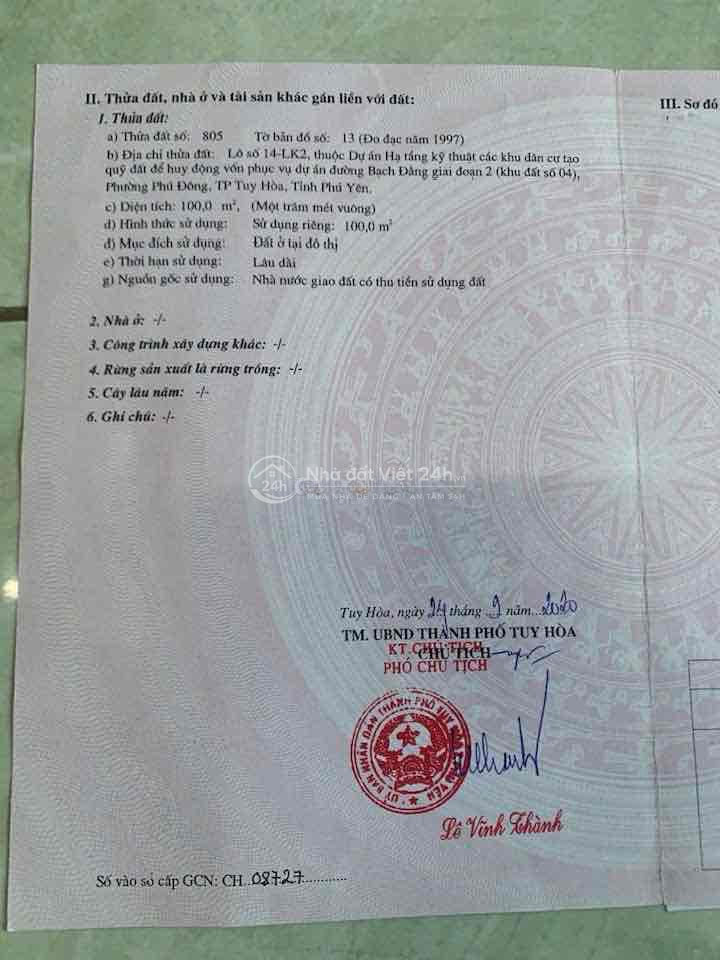 II. Thửa đất, nhà ở và tài sản khác gắn liền với đất:
1. Thửa đất:
a) Thửa đất số: 805 Tờ bản đồ số: 13 (Đo đạc năm 1997)
b) Địa chỉ thửa đất: Lô số 14-LK2, thuộc Dự án Hạ tầng kỹ thuật các khu dân cư tạo
quỹ đất để huy động vốn phục vụ dự án đường Bạch Đằng giai đoạn 2 (khu đất số 04),
Phường Phú Đông, TP Tuy Hòa, Tỉnh Phú Yên.
c) Diện tích: 100,0 m², (Một trăm mét vuông)
d) Hình thức sử dụng: Sử dụng riêng: 100,0 m²
đ) Mục đích sử dụng: Đất ở tại đô thị
e) Thời hạn sử dụng: Lâu dài
g) Nguồn gốc sử dụng: Nhà nước giao đất có thu tiền sử dụng đất
2. Nhà ở: -/-
3. Công trình xây dựng khác: -/-
4. Rừng sản xuất là rừng trồng: -/-
5. Cây lâu năm: -/-
6. Ghi chú: -/-
III. Sơ đồ
24h
Nhà đất Việt 24h.vn
MUA NHÀ DỄ DÀNG | AN TÂM 24H
Tuy Hòa, ngày 24 tháng 2 năm 2020
TM. UBND THÀNH PHỐ TUY HÒA
CHỦ TỊCH
KT.CHỦ TỊCH
PHÓ CHỦ TỊCH
ỦY BAN NHÂN DÂN THÀNH PHỐ TUY HÒA
Lê Vĩnh Thành
Số vào sổ cấp GCN: CH 08727